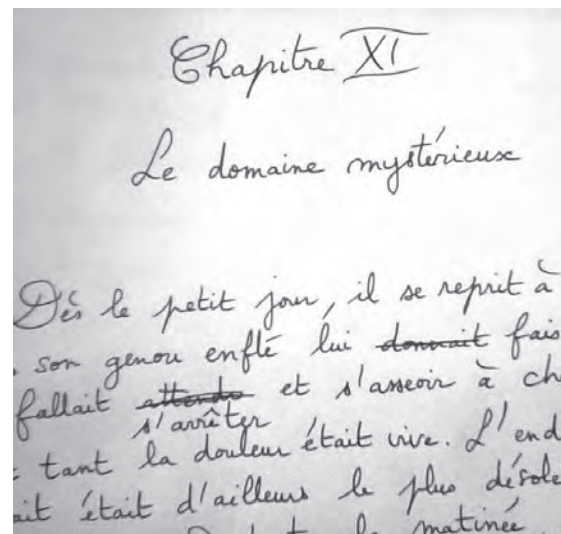 Chapitre XI
Le domaine mystérieux
Dès le petit jour, il se reprit à
son genou enflé lui donnait fais
fallait attendre et s'asseoir à ch
s'arrêter
tant la douleur était vive. L'end
ait était d'ailleurs le plus désolé
la matinée